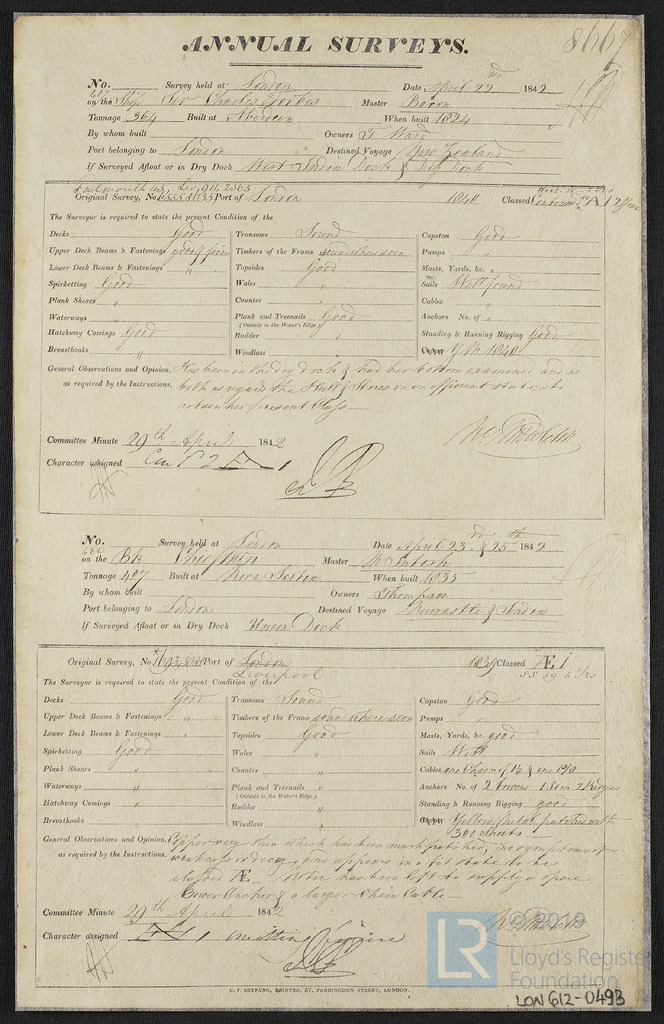 8667
ANNUAL SURVEYS.
No. 417 Survey held at London Date April 22nd 1842
on the Ship Sir Charles Forbes Master Bacon
Tonnage 364 Built at Aberdeen When built 1824
By whom built Owners T Ward
Port belonging to London Destined Voyage New Zealand
If Surveyed Afloat or in Dry Dock West India Dock & Dry Dock
Falmouth 43, Liv. 911, 2565
Original Survey, No. Port of London 1840 Classed
The Surveyor is required to state the present Condition of the
Decks Good Transoms Sound Capstan Good
Upper Deck Beams & Fastenings good & firm Timbers of the Frame sound where seen Pumps "
Lower Deck Beams & Fastenings " Topsides Good Masts, Yards, &c. "
Spirketting Good Wales " Sails Well found
Plank Shears " Counter " Cables "
Waterways " Plank and Treenails Good Anchors No. of "
(Outside to the Water's Edge.)
Hatchway Comings Good Rudder " Standing & Running Rigging Good
Breasthooks " Windlass Y.M. 1840
General Observations and Opinion, Has been in the dry dock & had her bottom examined and is
as required by the Instructions. both as regards the Hull & Stores in an efficient state to
retain her present Class
Committee Minute 29th April 1842
Character assigned
No. 480 Survey held at London Date April 23rd & 25th 1842
on the Bk Chieftain Master McIntosh
Tonnage 407 Built at Nova Scotia When built 1835
By whom built Owners Thompson
Port belonging to London Destined Voyage Newcastle & India
If Surveyed Afloat or in Dry Dock Union Dock
Original Survey, No. Port of London 1839 Classed Æ 1
Liverpool
The Surveyor is required to state the present Condition of the
Decks Good Transoms Sound Capstan Good
Upper Deck Beams & Fastenings " Timbers of the Frame sound where seen Pumps "
Lower Deck Beams & Fastenings " Topsides Good Masts, Yards, &c. good
Spirketting Good Wales " Sails Well
Plank Shears " Counter " Cables
Waterways " Plank and Treenails " Anchors No. of 2 Bowers 1 Stm 2 Kedges
(Outside to the Water's Edge.)
Hatchway Comings " Rudder " Standing & Running Rigging good
Breasthooks Windlass " Yellow metal patched with
300 Sheets
General Observations and Opinion, Copper very thin which has been much patched, no symptoms of
as required by the Instructions. weakness or decay, and appears in a fit state to be
classed Æ. Notice has been left to supply a spare
Bower Anchor & a larger Chain Cable
Committee Minute 29th April 1842
Character assigned
G. F. SEYFANG, PRINTER, 57, FARRINGDON STREET, LONDON.
LR
© 2019
Lloyd's Register
Foundation
LON 612-0493